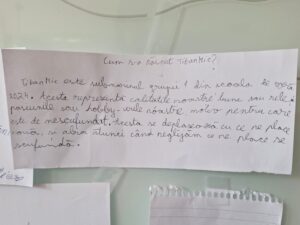 Cum s-a născut Titannic?
Titannic este subnumirul grupei 1 din școala de vară
2024. Acesta reprezintă calitățile noastre bune sau rele,
pasiunile sau hobby-urile noastre motiv pentru care
este de nescufundat. Acesta se deplasează cu ce ne place
nouă, și abia atunci când neglijăm ce ne place se
scufundă.